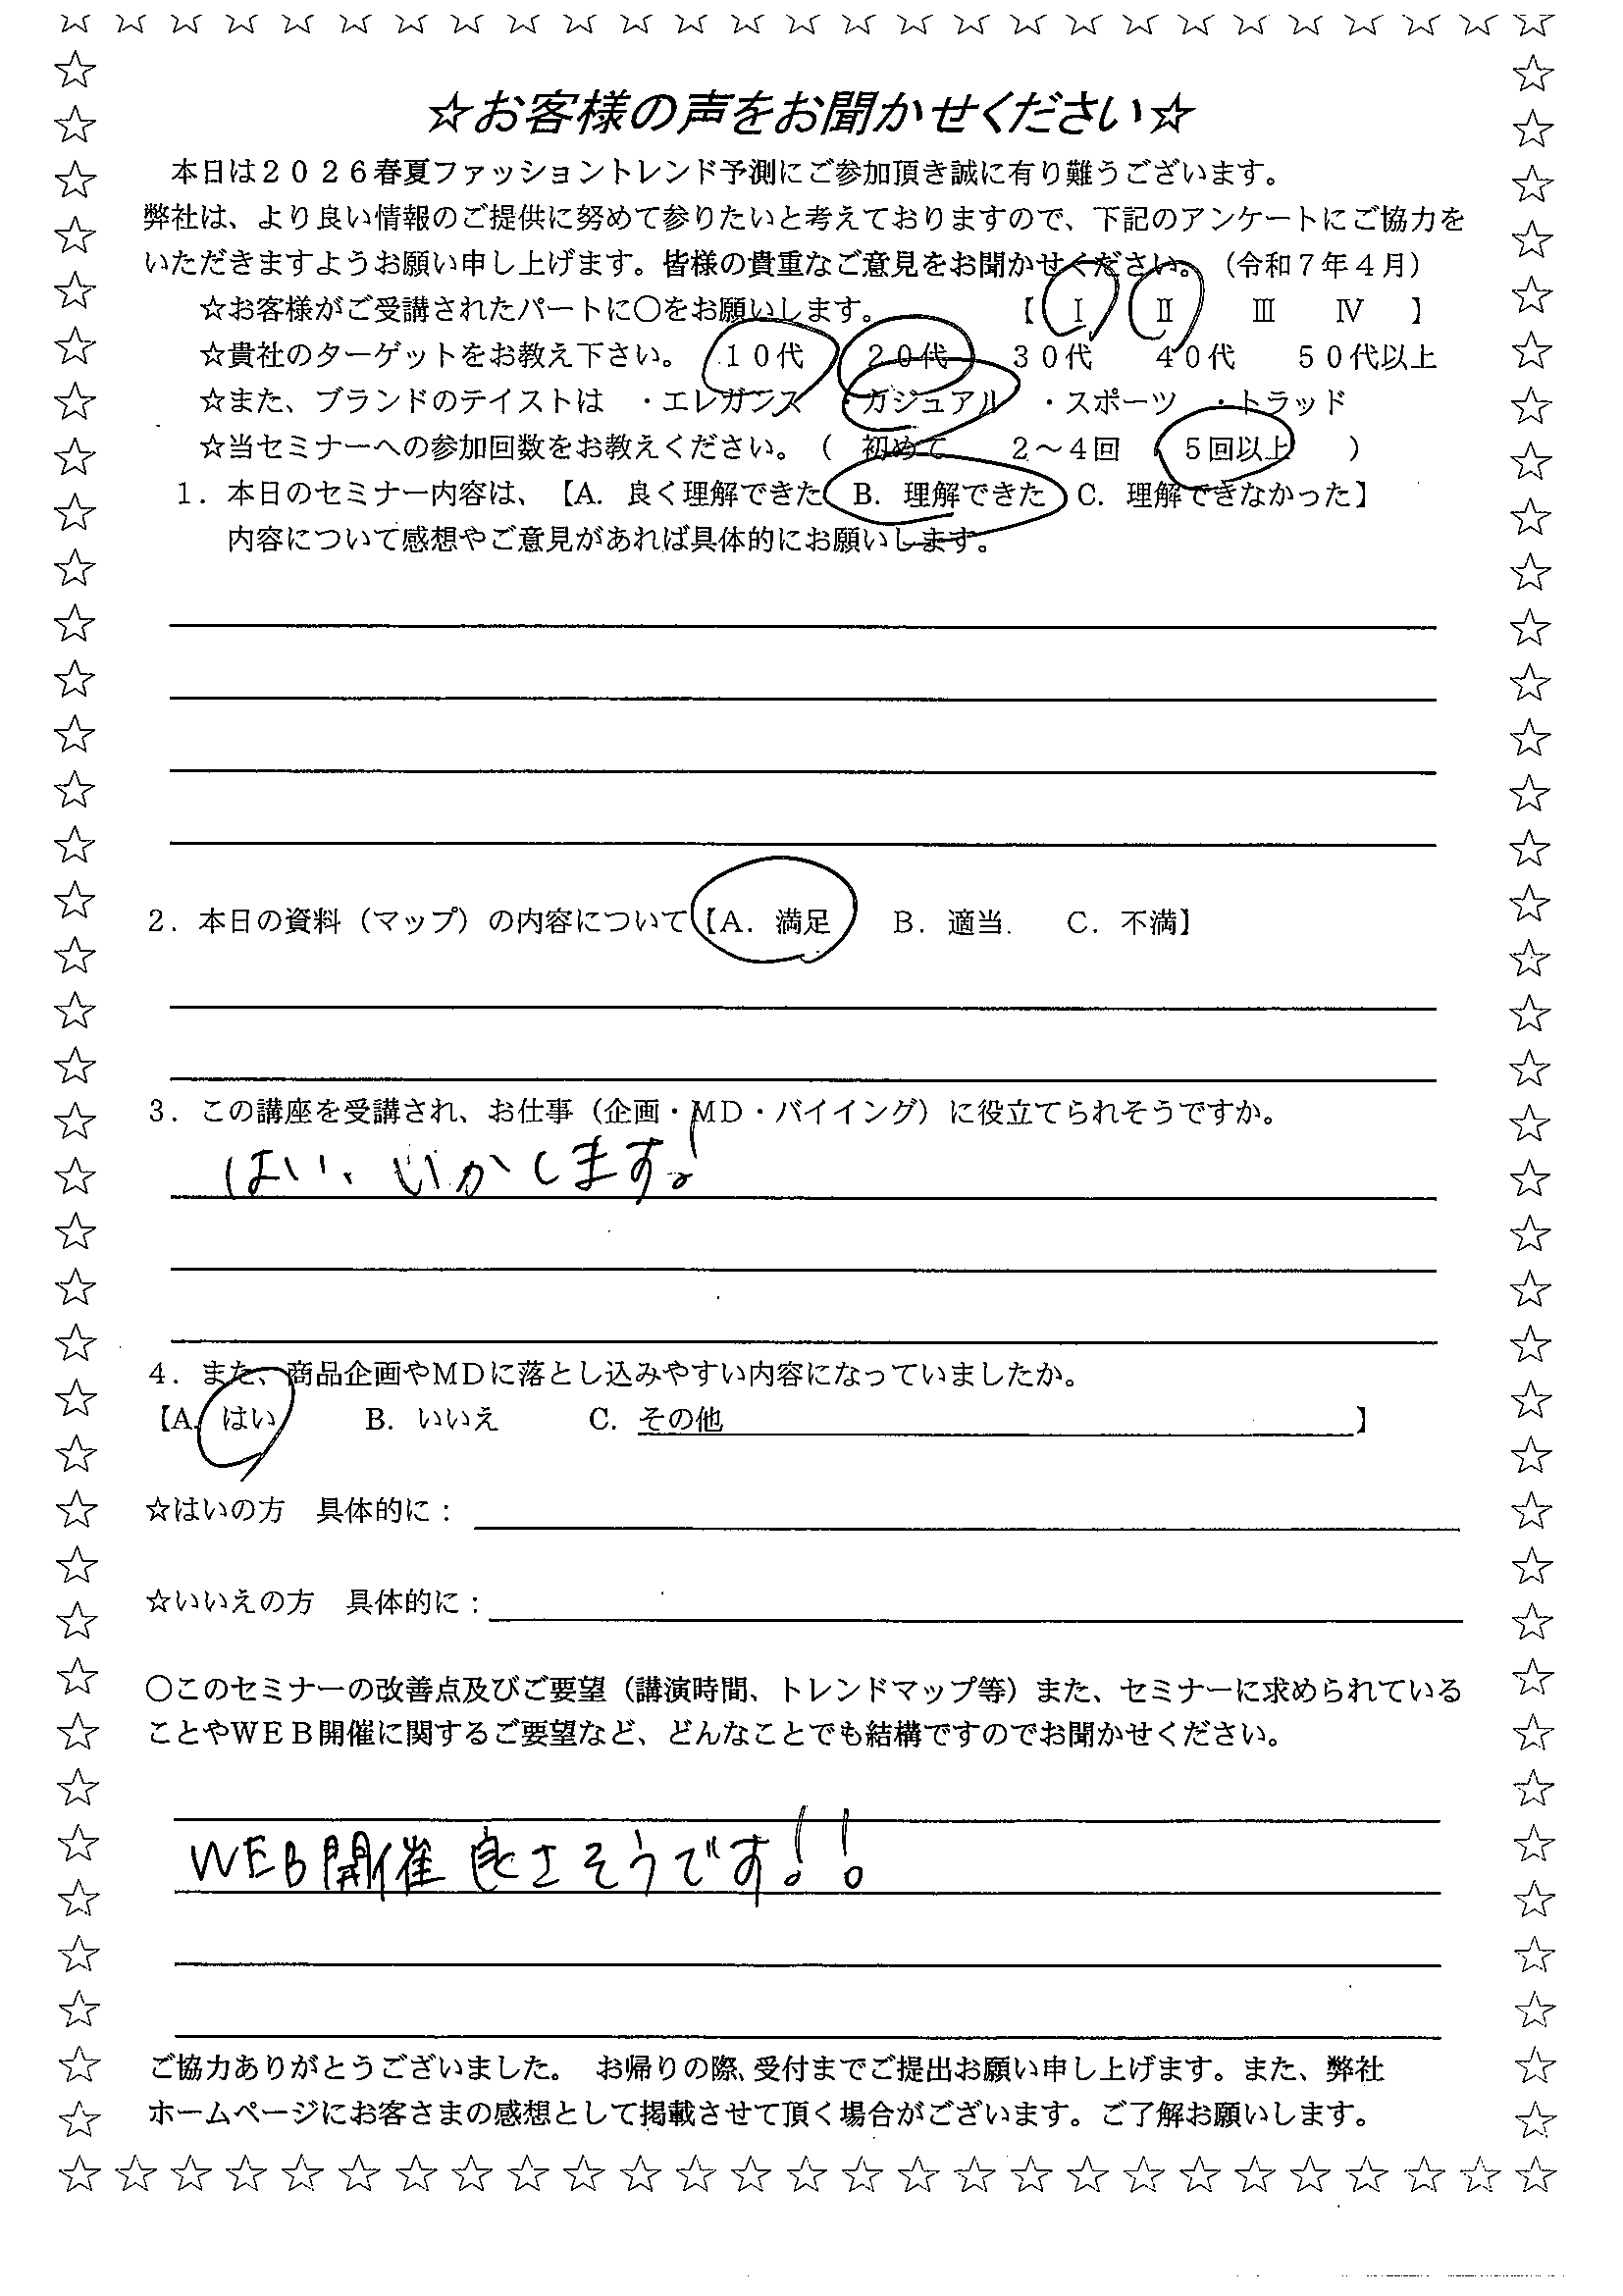 ☆お客様の声をお聞かせください☆
本日は２０２６春夏ファッショントレンド予測にご参加頂き誠に有り難うございます。
弊社は、より良い情報のご提供に努めて参りたいと考えておりますので、下記のアンケートにご協力を
いただきますようお願い申し上げます。皆様の貴重なご意見をお聞かせください。（令和７年４月）
☆お客様がご受講されたパートに〇をお願いします。　【　Ⅰ　Ⅱ　Ⅲ　Ⅳ　】
☆貴社のターゲットをお教え下さい。　１０代　２０代　３０代　４０代　５０代以上
☆また、ブランドのテイストは　・エレガンス　・カジュアル　・スポーツ　・トラッド
☆当セミナーへの参加回数をお教えください。（　初めて　２～４回　５回以上　）
１．本日のセミナー内容は、【A．良く理解できた　B．理解できた　C．理解できなかった】
内容について感想やご意見があれば具体的にお願いします。
２．本日の資料（マップ）の内容について【A．満足　B．適当．　C．不満】
３．この講座を受講され、お仕事（企画・ＭＤ・バイイング）に役立てられそうですか。
はい、いかします!
４．また、商品企画やＭＤに落とし込みやすい内容になっていましたか。
【A．はい　B．いいえ　C．その他　】
☆はいの方　具体的に：
☆いいえの方　具体的に：
〇このセミナーの改善点及びご要望（講演時間、トレンドマップ等）また、セミナーに求められている
ことやＷＥＢ開催に関するご要望など、どんなことでも結構ですのでお聞かせください。
WEB開催 良さそうです!!
ご協力ありがとうございました。　お帰りの際、受付までご提出お願い申し上げます。また、弊社
ホームページにお客さまの感想として掲載させて頂く場合がございます。ご了解お願いします。